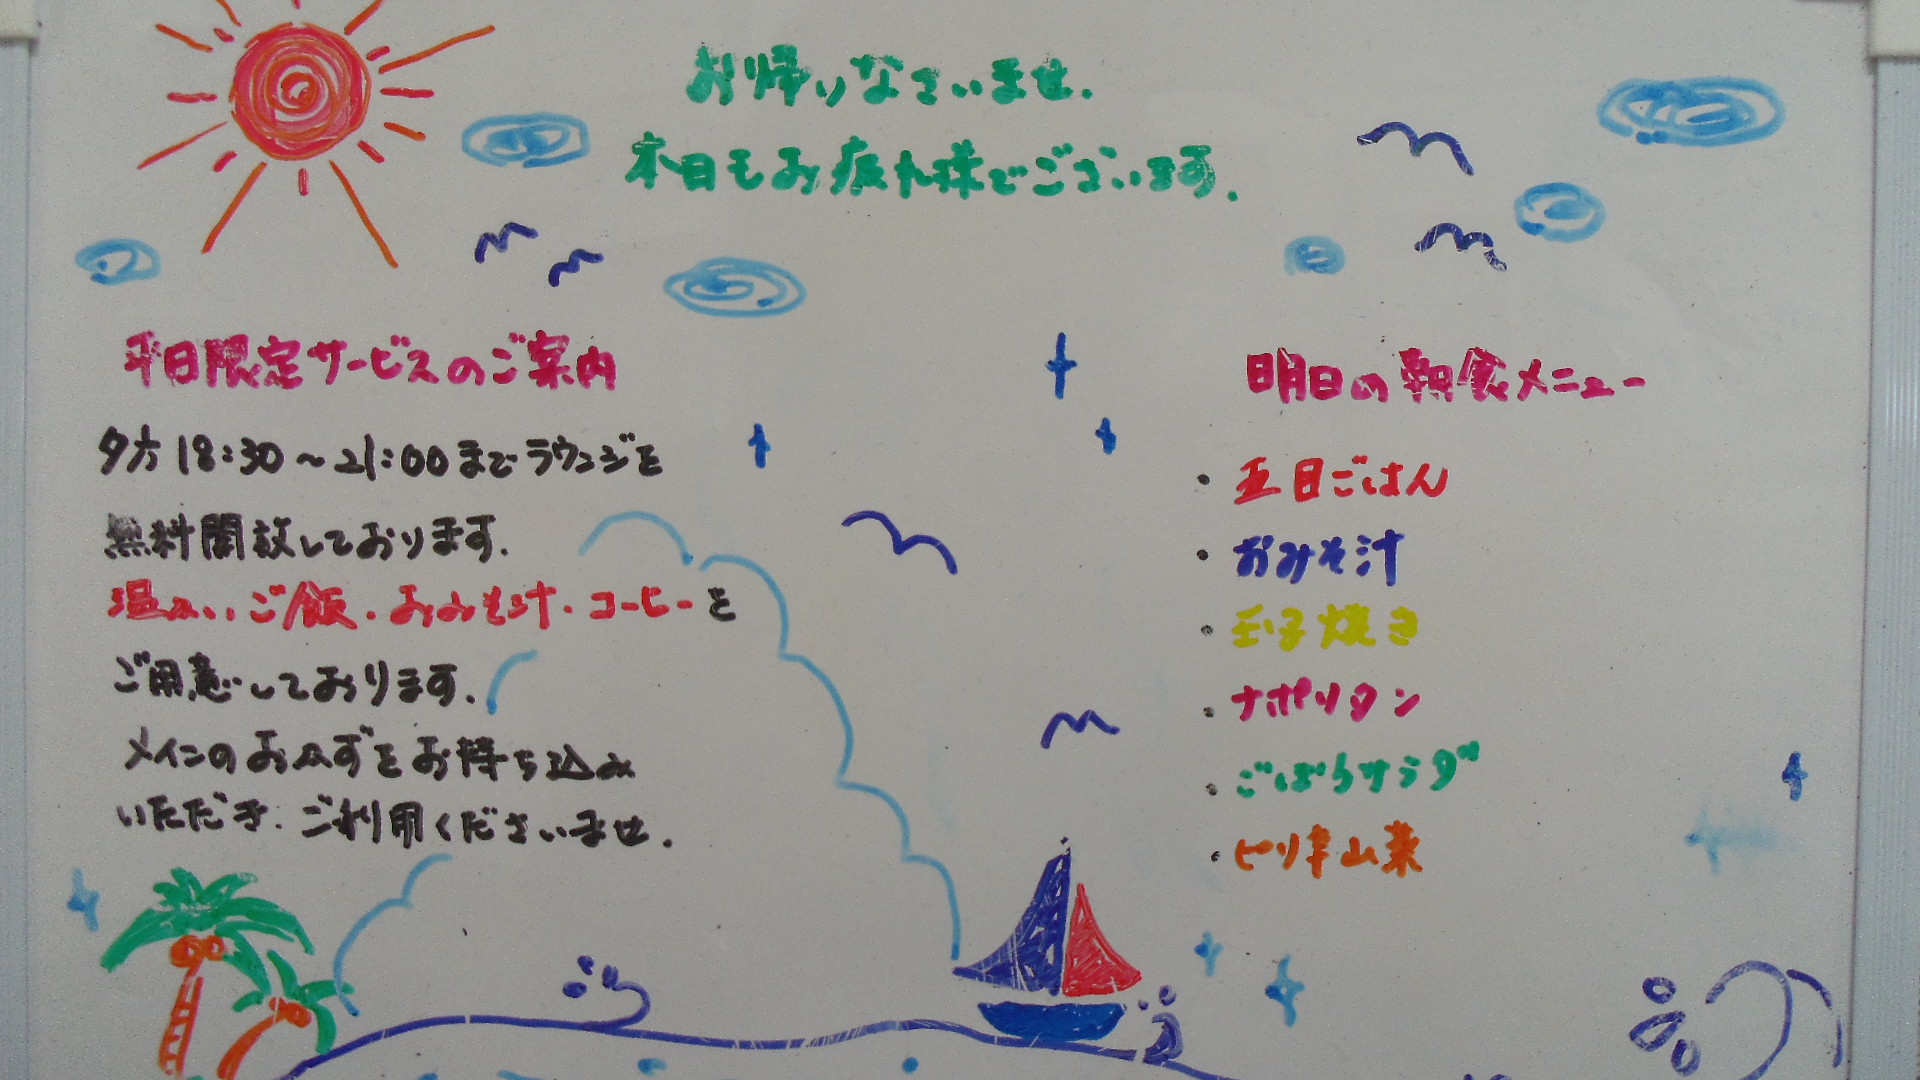 お帰りなさいませ.
本日もお疲れ様でございます.
平日限定サービスのご案内
夕方18:30～21:00までラウンジを
無料開放しております.
温かいご飯・おみそ汁・コーヒーを
ご用意しております.
メインのおかずをお持ち込み
いただき.ご利用くださいませ.
明日の朝食メニュー
・五目ごはん
・おみそ汁
・玉子焼き
・ナポリタン
・ごぼうサラダ
・ピリ辛山菜